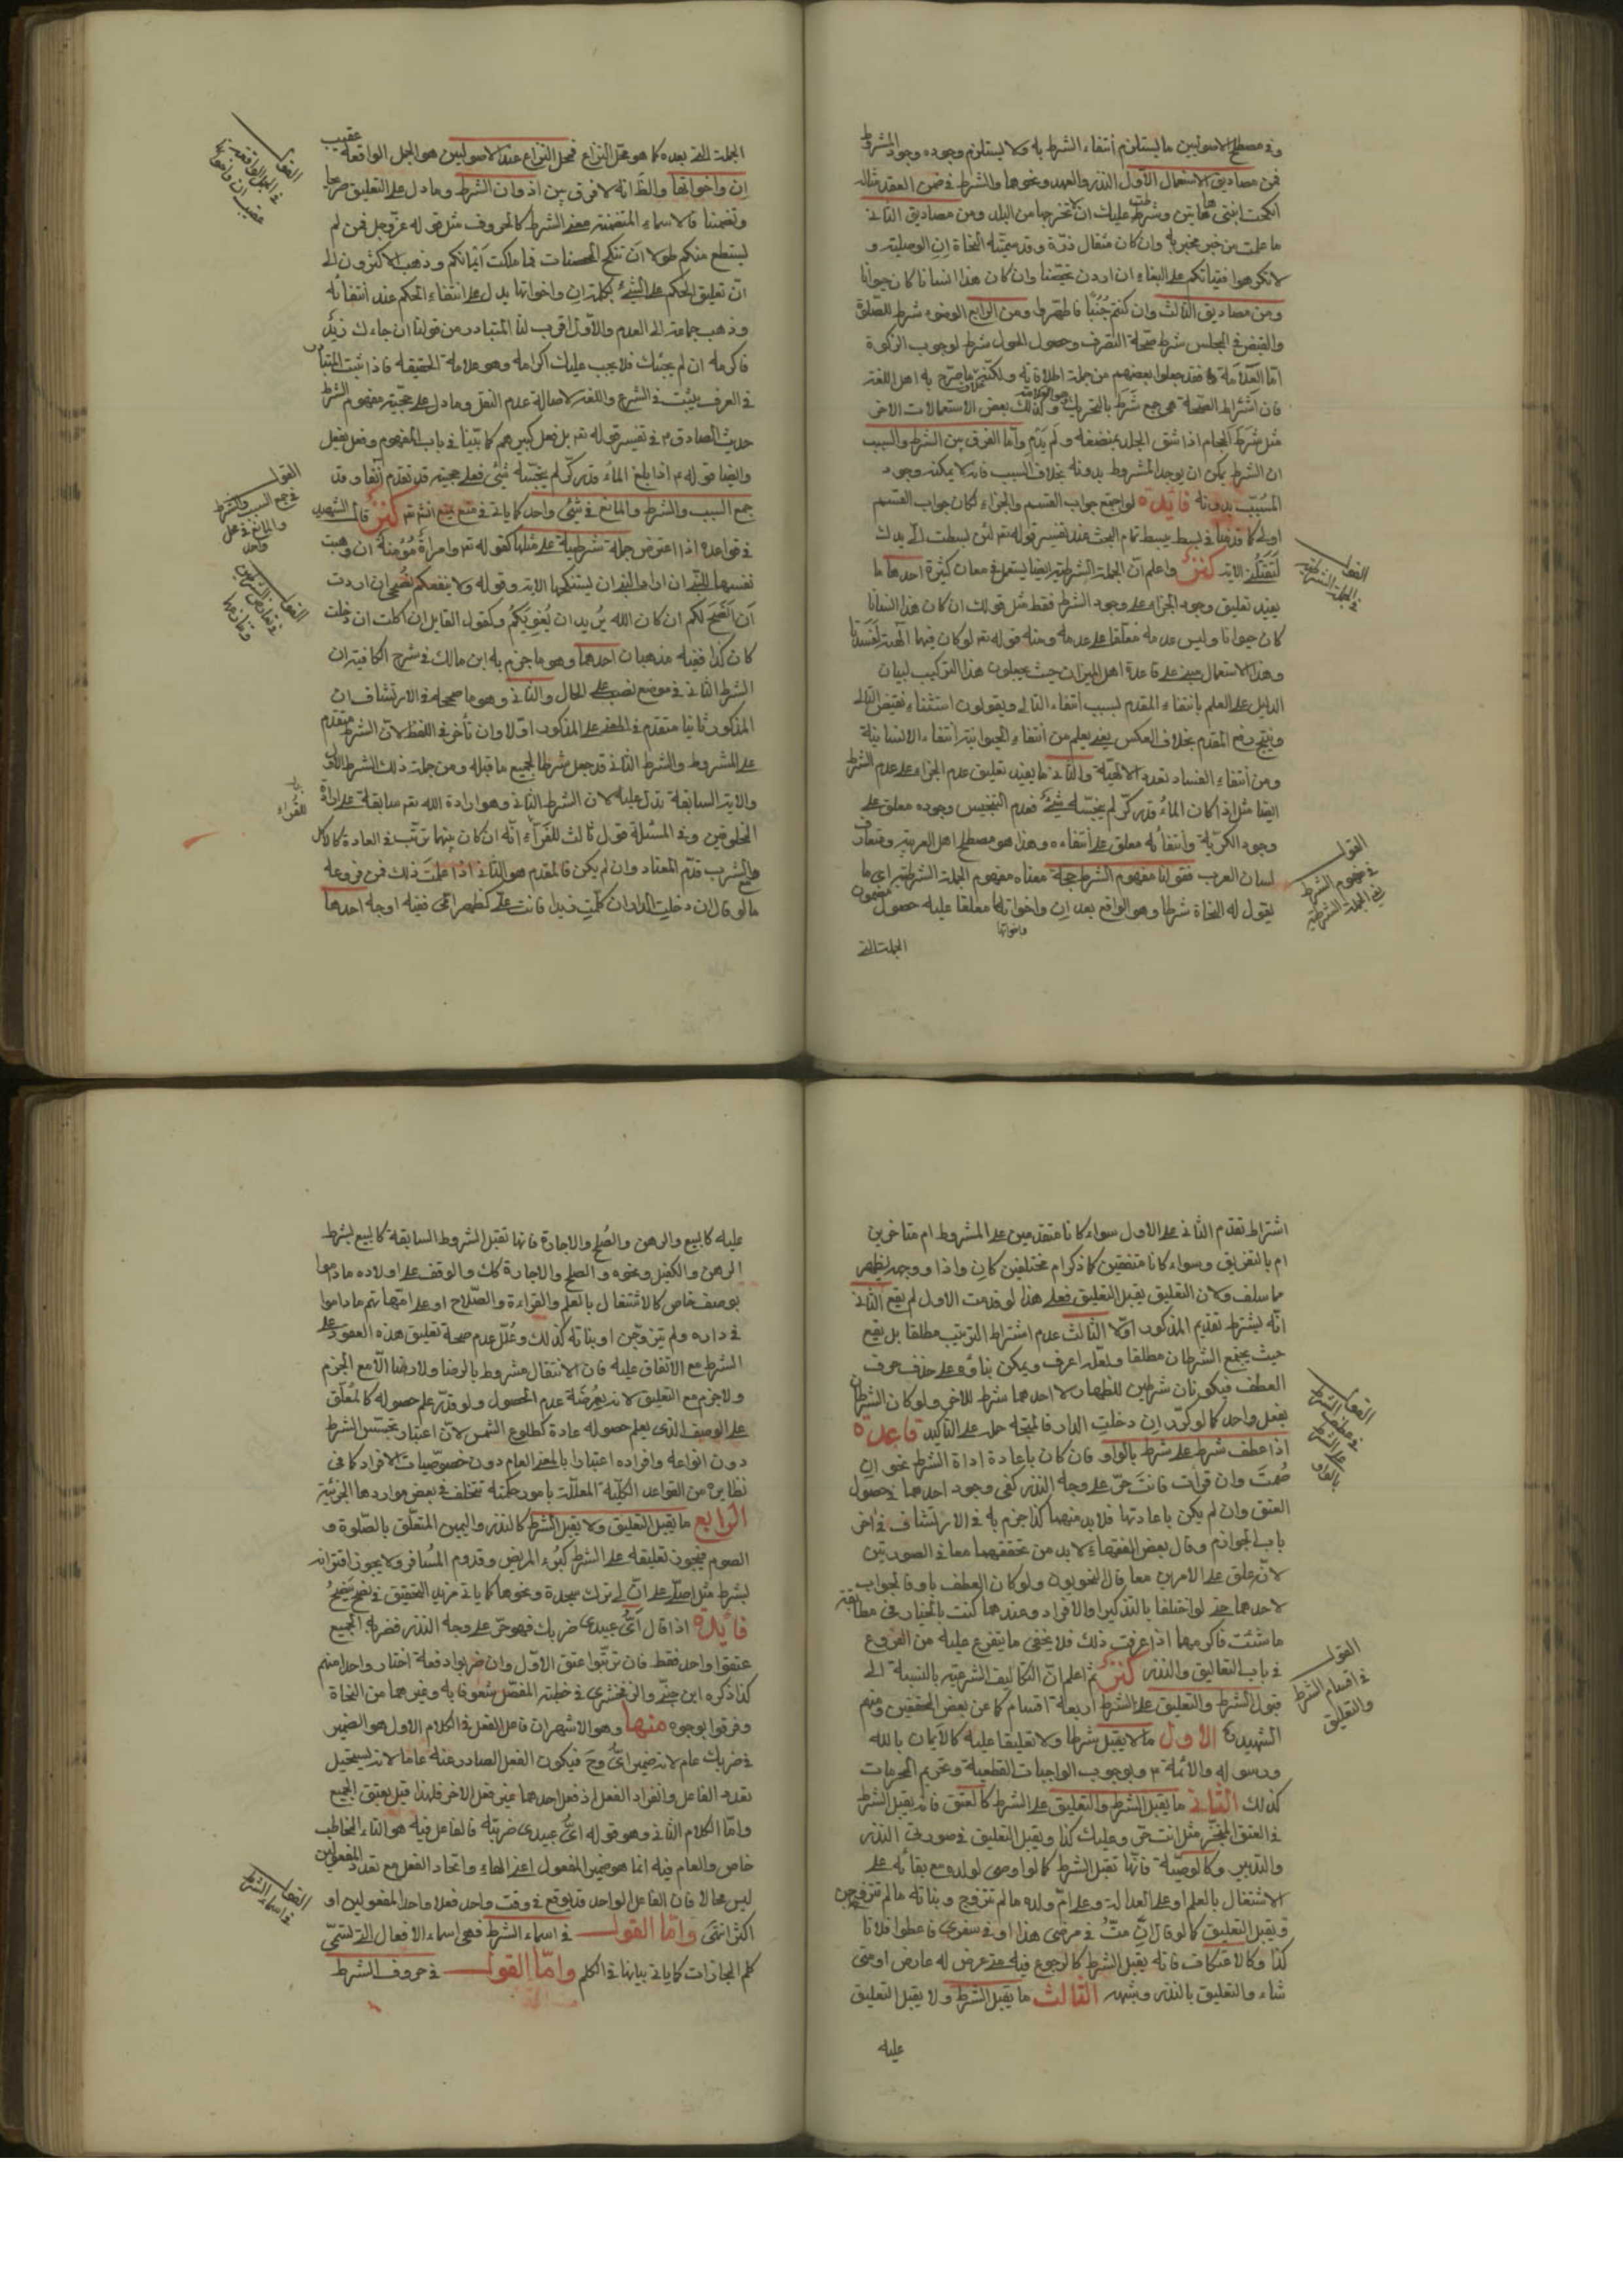 وفي مصطلح الاصوليين ما يستلزم أنتفاء الشرط به ولا يستلزم وجوده وجود المشروط
فمن مصاديق الاستعمال الأول النذر والعهد ونحوهما والشرط في ضمن العقد مثاله
انكحت ابنتي هاتين وشرطت عليك ان لا تخرجها من البلد ومن مصاديق الثاني
ما علمت من خبر مخبر به وان كان مثقال ذرة وقد سميته النحاة إن الوصلية و
لا تكرهوا فتياتكم على البغاء ان اردن تحصنا وان كان هذا انسانا كان حيوانا
ومن مصاديق الثالث وان كنتم جنبا فاطهروا ومن الرابع الوضوء شرط للصلوة
والقبض في المجلس شرط صحة التصرف وحصول الحول شرط لوجوب الزكوة
امّا العلامة فقد جعلوا بعضهم من جملة اطلاقاته ولكنه خلاف ما صرح به اهل اللغة
فان اشراط الساعة هي جمع شرط بالتحريك وكذلك بعض الاستعمالات الاخر
مثل شرط الحجام اذا شق الجلد بمبضعه ولم يدم وأما الفرق بين الشرط والسبب
ان الشرط يمكن ان يوجد المشروط بدونه بخلاف السبب فانه لا يمكن وجود
المسبب بدونه فايدة لو اجتمع جواب القسم والجزاء لكان جواب القسم
اولى كما قدمنا في بسيط يبسط تمام البحث عند تفسير قوله تعالى لئن بسطت الي يدك
لتقتلني الاية كنز واعلم انّ الجملة الشرطية ايضا يستعمل في معان كثيرة احدها ما
يفيد تعليق وجود الجزاء على وجود الشرط فقط مثل قولك ان كان هذا انسانا
كان حيوانا وليس عدمه معلقا على عدمه ومنه قوله تعالى لو كان فيهما آلهة لفسدتا
وهذا الاستعمال مبني على قاعدة اهل الميزان حيث يجعلون هذا التركيب لبيان
الدليل على العلم بانتفاء المقدم لسبب انتفاء التالي ويقولون استثناء نقيض التالي
وينتج رفع المقدم بخلاف العكس يعني يعلم من أنتفاء الحيوانية أنتفاء الانسانية
ومن أنتفاء الفساد تعدد الالهة والثاني ما يفيد تعليق عدم الجزاء على عدم الشرط
ايضا مثل اذا كان الماء قدر كر لم ينجسه شئ فعدم التنجيس وجوده معلق على
وجود الكرية وأنتفائه معلق على أنتفائه وهذا هو مصطلح اهل العربية ومتعارف
لسان العرب فقولنا مفهوم الشرط حجة معناه مفهوم الجملة الشرطية اي ما
يقول له النحاة شرطا وهو الواقع بعد ان واخواتها معلقا عليه حصول مضمون
الجملة التي
القول في الجملة الشرطية
القول في مفهوم الشرط في الجملة الشرطية
الجملة التي بعده كما هو محل النزاع فمحل النزاع عند الاصوليين هو الجمل الواقعة عقيب
ان واخواتها والظ انه لا فرق بين ادوات الشرط وما دل على التعليق صريحا
وتضمنا فالاسماء المتضمنة معنى الشرط كالحروف مثل قوله عزوجل فمن لم
يستطع منكم طولا ان ينكح المحصنات فمما ملكت أيمانكم وذهب الاكثرون الى
انّ تعليق الحكم على الشئ بكلمة ان واخواتها يدل على انتفاء الحكم عند أنتفائه
وذهب جماعة الى العدم والأول اقرب لنا المتبادر من قولنا ان جاءك زيد
فاكرمه ان لم يجئك فلا يجب عليك اكرامه وهو علامة الحقيقة فاذا ثبت التبادر
في العرف يثبت في الشرع واللغة لاصالة عدم النقل ومما دل على حجية مفهوم الشرط
حديث الصادق في تفسير قوله تعالى بل فعله كبيرهم كما بينا في باب المفهوم وفعل يفعل
وايضا قوله اذا بلغ الماء قدر كر لم ينجسه شئ فعلى حجيته قد تقدم آنفا وقد
جمع السبب والشرط والمانع في شئ واحد كما ياتي في منع يمنع انشم كنز قال الشهيد
في قواعده اذا اعترض جملة شرطية على مثلها كقوله تعالى وامرأة مؤمنة ان وهبت
نفسها للنبي ان اراد النبي ان يستنكحها الاية وقوله ولا ينفعكم نصحي ان اردت
أن أنصح لكم ان كان الله يريد ان يغويكم وكقول القايل ان اكلت ان دخلت
كان كذا ففيه مذهبان احدهما وهو ما جزم به ابن مالك في شرح الكافية ان
الشرط الثاني في موضع نصب على الحال والثاني وهو ما صححه في الارتشاف ان
المذكور ثانيا متقدم في المعنى على المذكور اولا وان تأخر في اللفظ لان الشرط متقدم
على المشروط والشرط الثاني قد جعل شرطا لجميع ما قبله ومن جملة ذلك الشرط الأول
والاية السابقة تدل عليه لان الشرط الثاني وهو ارادة الله تعالى سابقة على ارادة
المخلوقين وفي المسئلة قول ثالث للفرّاء انّه ان كان بينهما ترتّب في العادة كالاكل
مع الشرب قدّم المعتاد وان لم يكن فالمقدم هو الثاني اذا علمت ذلك فمن فروعه
ما لو قال ان دخلت الدار ان كلمت زيدا فانت علي كظهر امي ففيه اوجه احدها
القول في الجمل الواقعة عقيب ان واخواتها
القول في جمع السبب والشرط والمانع في محل واحد
القول في تعارض الشرطين
اشتراط تقدم الثاني على الاول سواء كانا متقدمين على المشروط ام متاخرين
ام بالتفريق وسواء كانا متفقين كما ذكر ام مختلفين كان واذا ووجهه يظهر
مما سلف ولان التعليق يقبل التعليق فعلى هذا لو قدمت الاول لم يقع الثاني
انّه يشترط تقديم المذكور اولا الثالث عدم اشتراط الترتيب مطلقا بل يقع
حيث يجتمع الشرطان مطلقا ولعله اعرف ويمكن بناؤه على حذف حرف
العطف فيكونان شرطين للظهار لا احدهما شرط للاخر ولو كان الشرطان
بفعل واحد كما لو كرر ان دخلت الدار فالمتجه حمله على التاكيد قاعدة
اذا عطف شرط على شرط بالواو فان كان باعادة اداة الشرط نحو ان
صُمتَ وان قرات فانت حرّ على وجه النذر كفى وجود احدهما في حصول
العتق وان لم يكن باعادتها فلا بد منهما كذا جزم به في الارتشاف في اخر
باب الجوازم وقال بعض الفقهاء لا بد من تحققهما معا في الصورتين
لانه علق على الامرين معا قال النحويون ولو كان العطف باو فالجواب
لاحدهما حتى لو اختلفا بالتذكير او الافراد وعندهما كنت بالخيار في مطابقة
ما شئت فاكرمها اذا عرفت ذلك فلا يخفى ما يتفرع عليه من الفروع
في باب التعاليق والنذر كنز ثم اعلم انّ التكاليف الشرعية بالنسبة الى
قبول الشرط والتعليق على الشرط اربعة اقسام كما عن بعض المحققين ومنهم
الشهيد الاول ما لا يقبل شرطا ولا تعليقا عليه كالايمان بالله
ورسوله والأئمة وبوجوب الواجبات القطعية وتحريم المحرمات
كذلك الثاني ما يقبل الشرط والتعليق على الشرط كالعتق فانه يقبل الشرط
في العتق المنجّز مثل انت حرّ وعليك كذا ويقبل التعليق في صورتي النذر
والتدبير وكالوصيّة فانّها تقبل الشرط كما لو اوصى لولده مع بقائه على
الاشتغال بالعلم او على العدالة وعلى امّ ولده ما لم تتزوج وبناته ما لم تتزوجن
ويقبل التعليق كما لو قال ان متّ في مرضي هذا او في سفري فاعطوا فلانا
كذا وكالاعتكاف فانه يقبل الشرط كالرجوع فيه متى عرض له عارض او متى
شاء والتعليق بالنذر وشبهه الثالث ما يقبل الشرط ولا يقبل التعليق
عليه
القول في عطف الشرط على الشرط بالواو
القول في اقسام الشرط والتعليق
عليه كالبيع والرهن والصلح والاجارة فانها تقبل الشروط السابقة كالبيع بشرط
الرهن والكفيل ونحوه والصلح والاجارة كك والوقف على اولاده ما داموا
بوصف خاص كالاشتغال بالعلم والقراءة والصّلاح او على امّهاتهم ما داموا
في داره ولم يتزوجن او بناته كذلك وعُلّل عدم صحة تعليق هذه العقود على
الشرط مع الاتفاق عليه فان الانتقال مشروط بالرضا ولا رضا الا مع الجزم
ولا جزم مع التعليق لانه بعُرضَة عدم الحصول ولو قدّر علم حصوله كالمعلّق
على الوصف الذي يعلم حصوله عادة كطلوع الشمس لانّ اعتبار بجنس الشرط
دون انواعه وافراده اعتبارا بالمعنى العام دون خصوصيات الافراد كما في
نظايره من القواعد الكلّية المعلّلة بامور حكمته تتخلف في بعض مواردها الجزئية
الرابع ما يقبل التعليق ولا يقبل الشرط كالنذر واليمين المتعلّق بالصّلوة و
الصوم فيجوز تعليقه على الشرط كبُرء المريض وقدوم المسافر ولا يجوز اقترانه
بشرط مثل اصلّي على انّ لي ترك سجدة ونحوها كما ياتي مزيد التحقيق في نضح ينضح
فايدة اذا قال أيّ عبيدي ضربك فهو حرّ على وجه النذر فضربه الجميع
عتقوا واحد فقط فان ترتبوا عتق الأوّل وان ضربوا دفعة اختار واحدا منهم
كذا ذكره ابن جنّي والزمخشري في خطبة المفصّل شعوفا به وغيرهما من النحاة
وفرقوا بوجوه منها وهو الاشهر ان فاعل الفعل في الكلام الاول هو الضمير
في ضربك عام لانه ضمير أيّ وح فيكون الفعل الصادر عنه عاما لانه يستحيل
تعدد الفاعل وانفراد الفعل اذ فعل احدهما غير فعل الاخر فلهذا قيل بعتق الجميع
وامّا الكلام الثاني وهو قوله ايّ عبيدي ضربته فالفاعل فيه هو التاء المخاطب
خاص والعام فيه انما هو ضمير المفعول اعني الهاء واتحاد الفعل مع تعدد المفعولين
ليس محالا فان الفاعل الواحد قد يوقع في وقت واحد فعلا واحدا لمفعولين او
اكثر انتهى وامّا القول في اسماء الشرط فهي اسماء الافعال التي تسمّى
كلم المجازات كما ياتي بيانها في الكلم وامّا القول في حروف الشرط
القول في اسماء الشرط